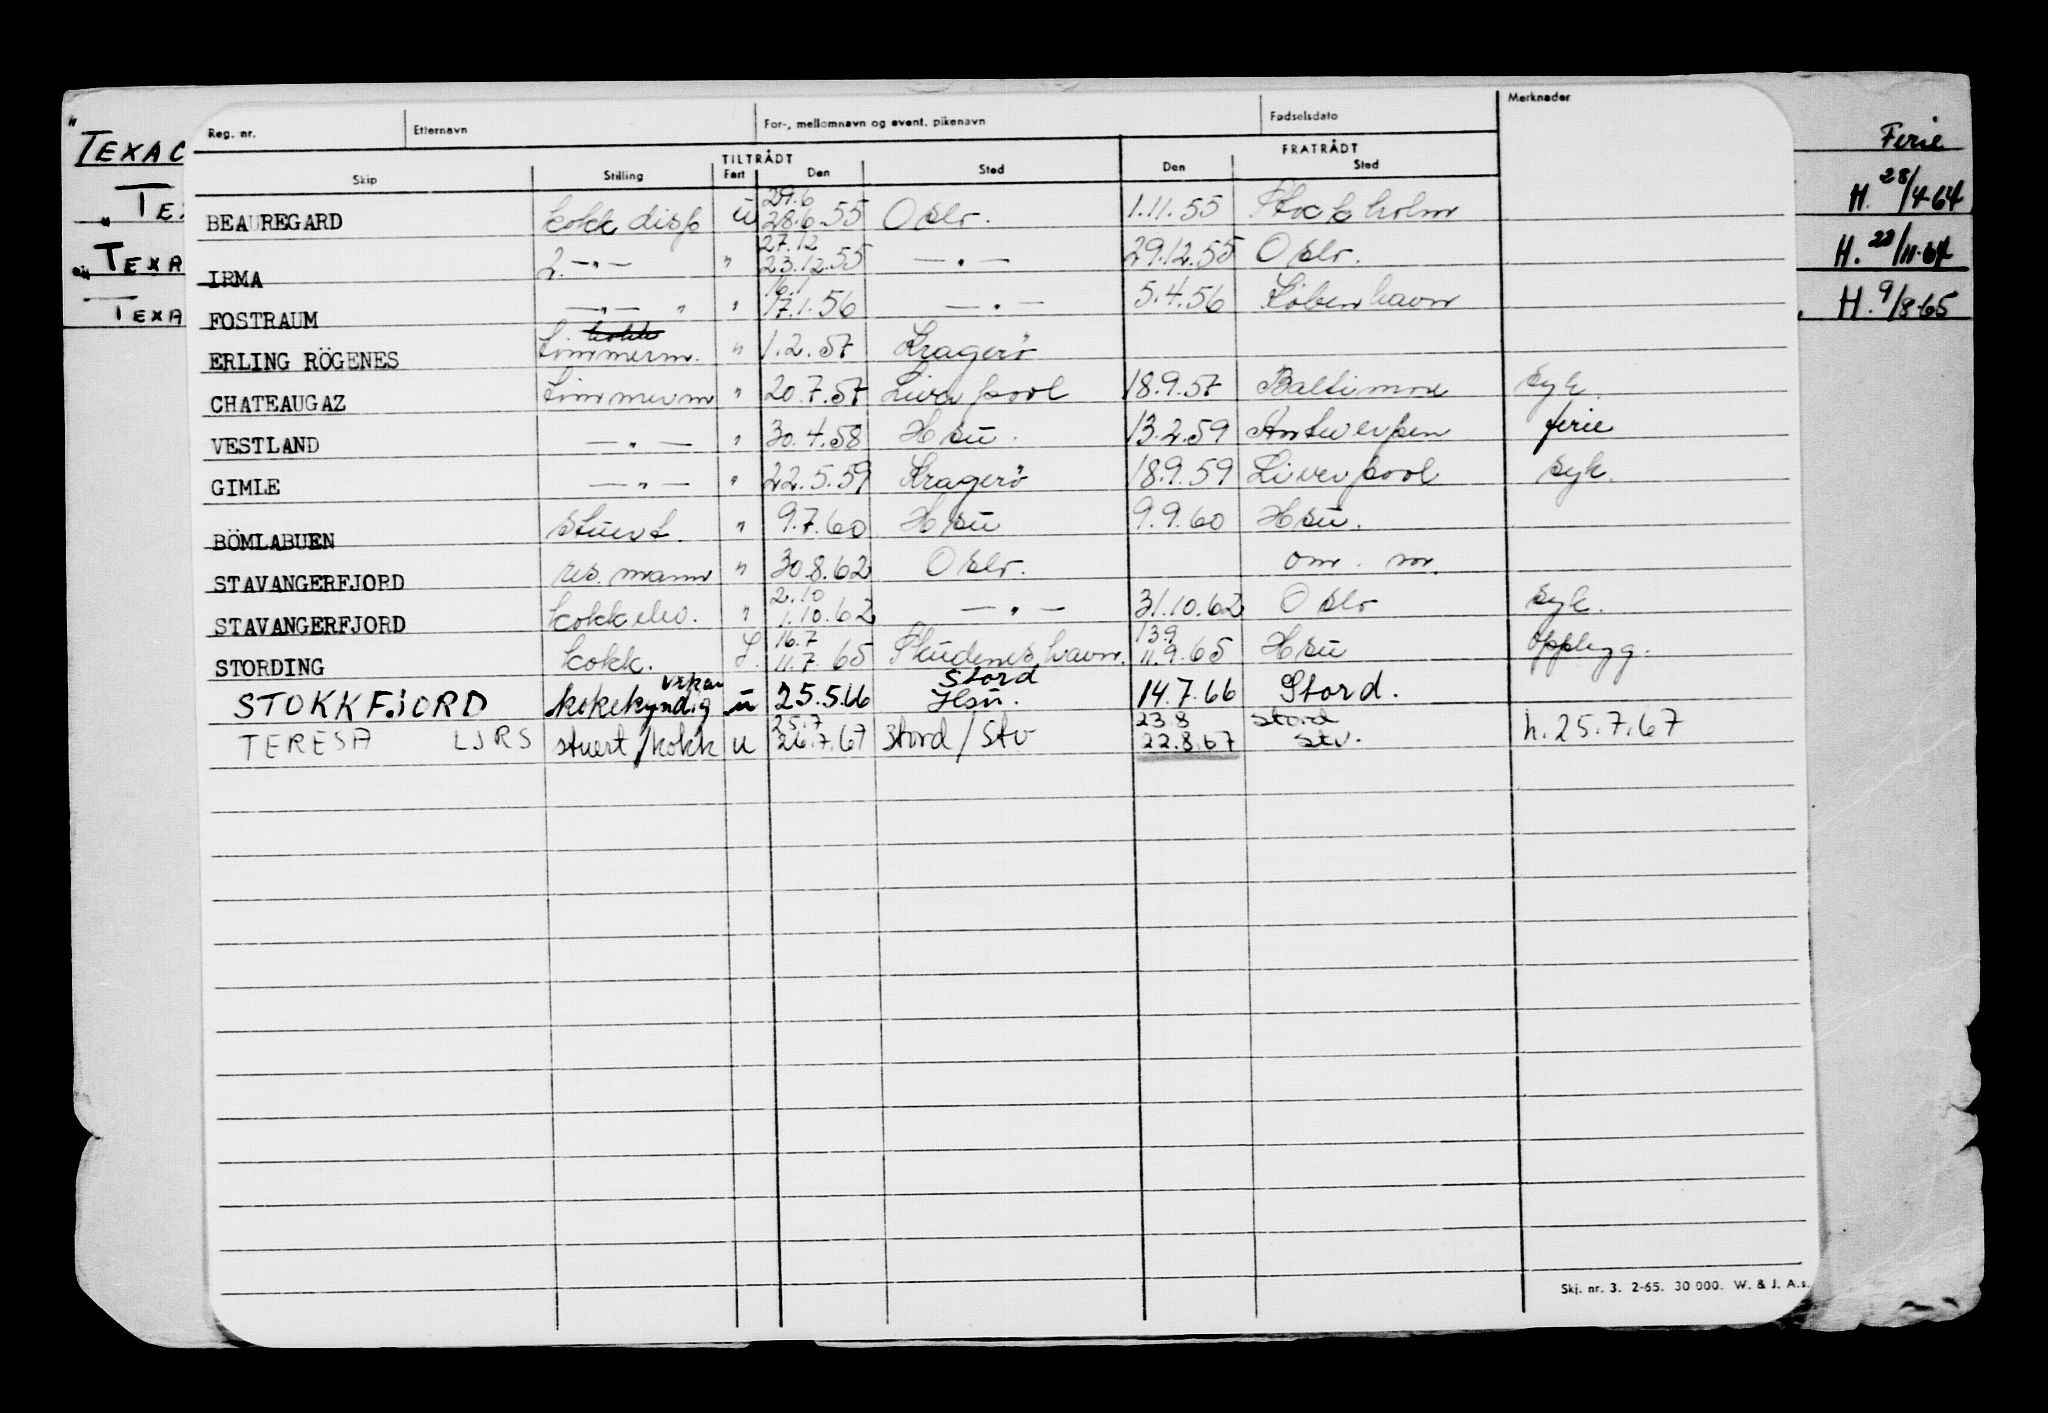 Reg. nr. Etternavn For-, mellomnavn og event. pikenavn Fødselsdato Merknader
TILTRÅDT FRATRÅDT
Skip Stilling Fart Den Sted Den Sted
29.6
BEAUREGARD kokk disp ū 28.6.55 Oslo. 1.11.55 Stockholm
27.12
IRMA 2. —"— " 23.12.55 —"— 29.12.55 Oslo.
16.1
FOSTRAUM —"— " " 17.1.56 —"— 5.4.56 København
ERLING RÖGENES timmerm. " 1.2.57 Kragerö
CHATEAUGAZ timmerm " 20.7.57 Liverpool 18.9.57 Baltimore syk.
VESTLAND —"— " 30.4.58 Hsū. 13.2.59 Antwerpen ferie
GIMLE —"— " 22.5.59 Kragerö 18.9.59 Liverpool syk.
BÖMLABUEN stuert. " 9.7.60 Hsū 9.9.60 Hsū.
STAVANGERFJORD res. mann " 30.8.62 Oslo. om. mr.
2.10
STAVANGERFJORD kokkelev. " 1.10.62 —"— 31.10.62 Oslo syk.
16.7 13.9
STORDING kokk. L. 11.7.65 Skudeneshavn. 11.9.65 Hsū opplegg.
Stord
STOKKFJORD kokekyndig ū 25.5.66 Hsū. 14.7.66 Stord.
25.7 23.8 Stord
TERESA LJRS stuert/kokk u 26.7.67 Stord/Stv 22.8.67 Stv. h.25.7.67
Skj. nr. 3. 2-65. 30 000. W. & J. A.s.
"TEXAC Ferie
" TEX H. 28/4-64
TEXA H. 22/11-64
TEXA H. 9/8-65